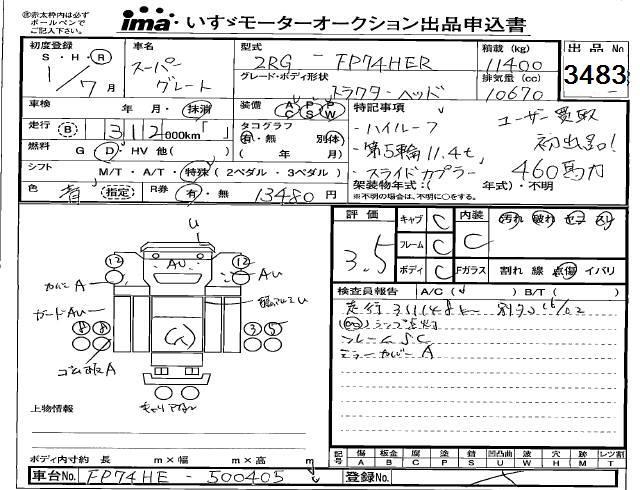 ㊟赤太枠内は必ず
ボールペンで
ご記入下さい。
ima いすゞモーターオークション出品申込書
初度登録 S・H・R 1/7月
車名 スーパーグレート
型式 2RG - FP74HER
積載(kg) 11400
出品No 3483
グレード・ボディ形状 トラクターヘッド
排気量(cc) 10670
車検 年・月・抹消
装備 AC PS PW
特記事項
走行 B 3112 000km
タコグラフ 有・無 別体
( 年 月)
・ハイルーフ
ユーザー買取
初出品!
燃料 G D HV 他( )
・第5輪11.4t
シフト M/T・A/T・特殊(2ペダル・3ペダル)
・スライドカプラー
460馬力
色 青 指定 R券 有・無 13480円
架装物年式:( 年式)・不明
※不明の場合は、不明に○をする。
評価 3.5
キャブ C
フレーム C
ボディ C
内装 C
汚れ 破れ
Fガラス 割れ 線 点傷 イバリ
検査員報告 A/C( ) B/T( )
ランプ点灯
フレームSC
ミラーカバーA
U
12 12
AU
カバーA
AU
ガードAU
8 8
3 5
ゴムA
上物情報
ボディ内寸約 長 m×幅 m×高 m
記号 傷A 板金B 腐C 塗P 錆S 凹凸曲U 波W 穴H 跡M レンズ割T
車台No. FP74HE - 500405
登録No.